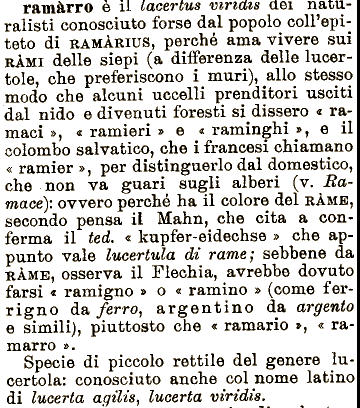 ramàrro è il lacertus viridis dei natu-
ralisti conosciuto forse dal popolo coll'epi-
teto di RAMÀRIUS, perché ama vivere sui
RÀMI delle siepi (a differenza delle lucer-
tole, che preferiscono i muri), allo stesso
modo che alcuni uccelli prenditori usciti
dal nido e divenuti foresti si dissero « ra-
maci », « ramieri » e « raminghi », e il
colombo salvatico, che i francesi chiamano
« ramier », per distinguerlo dal domestico,
che non va guari sugli alberi (v. Ra-
mace): ovvero perché ha il colore del RÀME,
secondo pensa il Mahn, che cita a con-
ferma il ted. « kupfer-eidechse » che ap-
punto vale lucertula di rame; sebbene da
RÀME, osserva il Flechia, avrebbe dovuto
farsi « ramigno » o « ramino » (come fer-
rigno da ferro, argentino da argento
e simili), piuttosto che « ramario », « ra-
marro ».
Specie di piccolo rettile del genere lu-
certola: conosciuto anche col nome latino
di lucerta agilis, lucerta viridis.